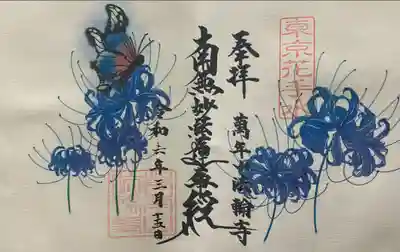 東京花手
奉拝
萬年山法輪寺
南無妙法蓮華経
令和六年三月十五日